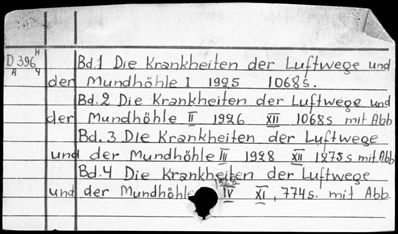 D 396 H A 4
Bd.1 Die Krankheiten der Luftwege und
der Mundhöhle I 1925 1068s.
Bd.2 Die Krankheiten der Luftwege und
der Mundhöhle II 1926 XII 1068s mit Abb
Bd.3 Die Krankheiten der Luftwege
und der Mundhöhle III 1928 XII 1275s mit Abb.
Bd.4 Die Krankheiten der Luftwege
und der Mundhöhle 1928 IV XI, 774s. mit Abb.